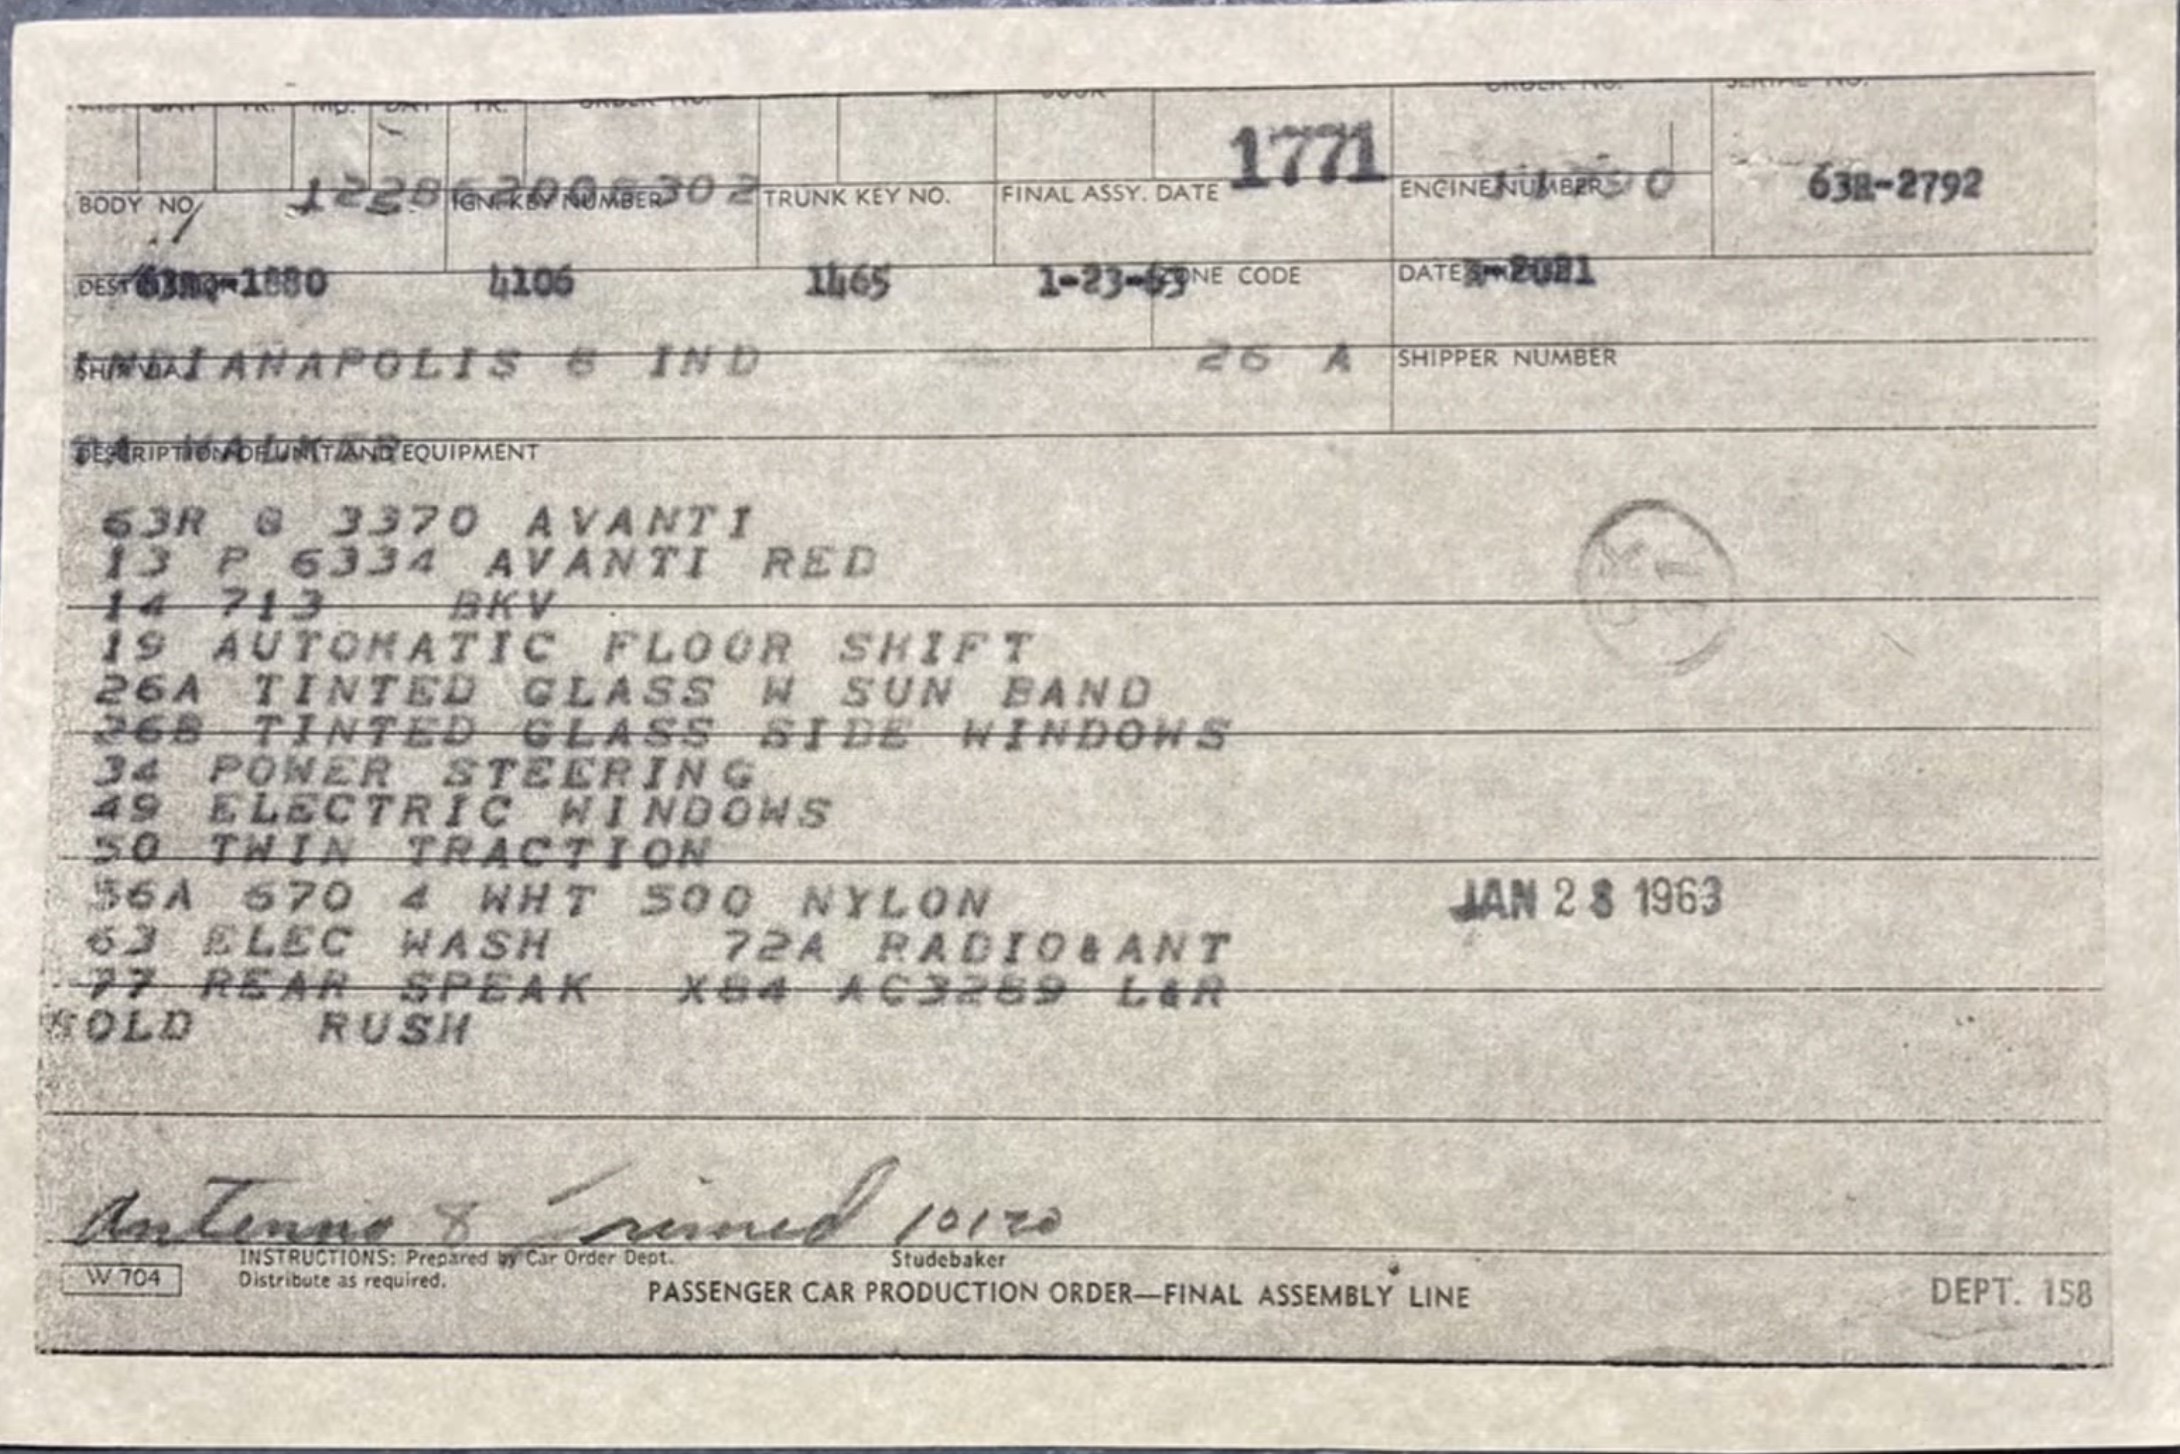 YR. MO. DAY YR. ORDER NO. ORDER NO. SERIAL NO.
1771
BODY NO. IGN. KEY NUMBER TRUNK KEY NO. FINAL ASSY. DATE ENGINE NUMBER 63R-2792
4106 1465 1-23-63 ZONE CODE DATE
INDIANAPOLIS 6 IND 26 A SHIPPER NUMBER
DESCRIPTION OF UNIT AND EQUIPMENT
63R Q 3370 AVANTI
13 P 6334 AVANTI RED
14 713 BKV
19 AUTOMATIC FLOOR SHIFT
26A TINTED GLASS W SUN BAND
26B TINTED GLASS SIDE WINDOWS
34 POWER STEERING
49 ELECTRIC WINDOWS
50 TWIN TRACTION
56A 670 4 WHT 500 NYLON
JAN 28 1963
63 ELEC WASH 72A RADIO&ANT
77 REAR SPEAK X84 AC3289 L&R
SOLD RUSH
Antenna & 10120
INSTRUCTIONS: Prepared by Car Order Dept. Studebaker
W 704 Distribute as required. PASSENGER CAR PRODUCTION ORDER—FINAL ASSEMBLY LINE DEPT. 158